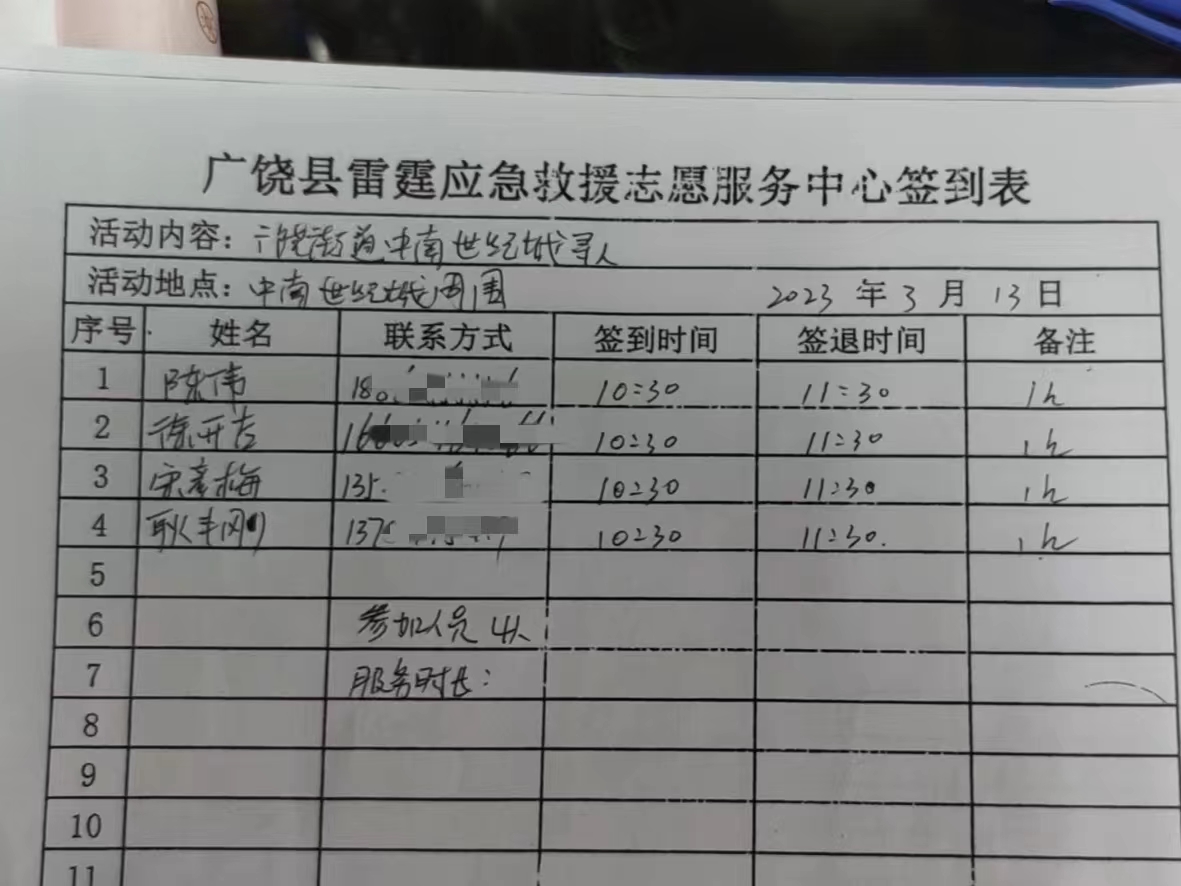 广饶县雷霆应急救援志愿服务中心签到表
活动内容：广饶街道中南世纪城寻人
活动地点：中南世纪城周围 2023 年 3 月 13 日
序号 姓名 联系方式 签到时间 签退时间 备注
1 陈伟 180 10:30 11:30 1h
2 徐开吉 166 10:30 11:30 1h
3 宋彦梅 135 10:30 11:30 1h
4 耿丰刚 137 10:30 11:30. 1h
5
6 参加人员 4人
7 服务时长：
8
9
10
11